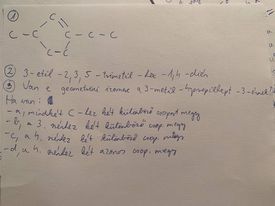 ①
C
C - C C - C - C
C - C
② 3-etil-2,3,5-trimetil-hex-1,4-dién
③ Van e geometriai izomere a 3-metil- -3-énnek?
Ha van:
- a, mindkét C-hez két különböző csoport megy
- b, a 3. nérhez két különböző csop. megy
- c, a 4. nérhez két különböző csop. megy
- d, a 4. nérhez két azonos csop. megy